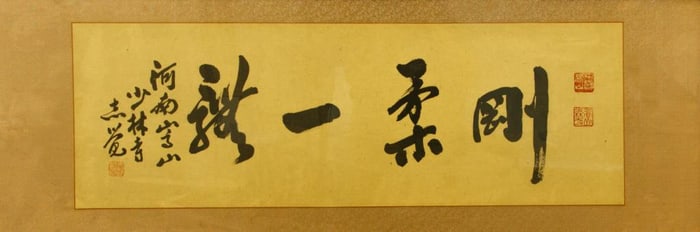 剛柔一體
河南嵩山
少林寺
志覺